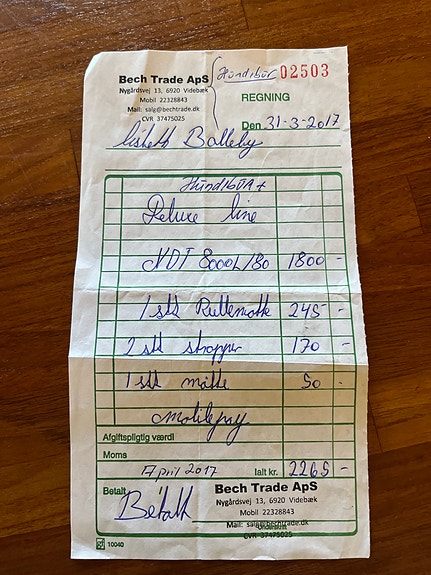 Bech Trade ApS
Nygårdsvej 13, 6920 Videbæk
Mobil 22328843
Mail: salg@bechtrade.dk
CVR 37475025
Hundibur 02503
REGNING
Den 31-3-2017
Lisbeth Balleby
Hundibur +
Deluxe line
NDT 8000L/80 1800 -
1 stk Rullematte 245 -
2 stk stropper 170 -
1 stk måtte 50 -
Afgiftspligtig værdi
Moms
April 2017 Ialt kr. 2265 -
Betalt
Betalt
Bech Trade ApS
Nygårdsvej 13, 6920 Videbæk
Mobil 22328843
Mail: salg@bechtrade.dk
CVR 37475025
10040